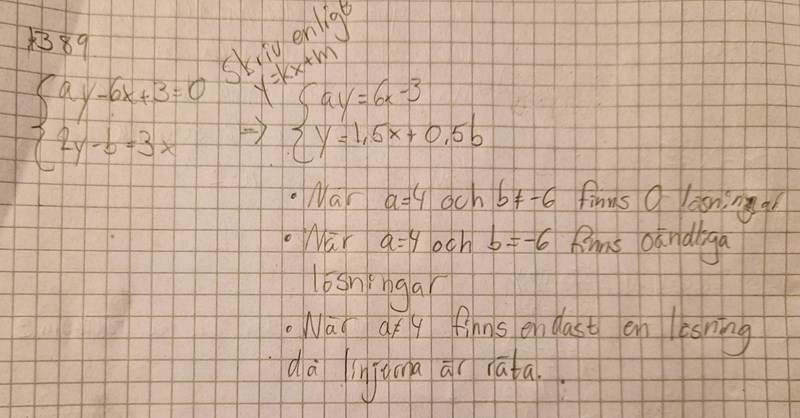 1389
Skriv enligt
y=kx+m
{ay-6x+3=0
{2y-b=3x
=> {ay=6x-3
{y=1,5x+0,5b
• När a=4 och b≠-6 finns 0 lösningar
• När a=4 och b=-6 finns oändliga
lösningar
• När a≠4 finns endast en lösning
då linjerna är räta.